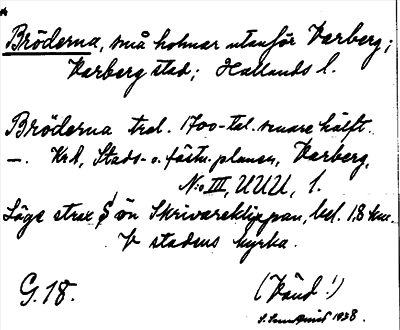 Bröderna, små holmar utanför Varberg;
Varberg stad; Hallands l.
Bröderna trol. 1700-tal. senare hälft.
–. KrA, Stads- o. fästn. planer, Varberg,
N:o III, UUU, 1.
Läge strax S ön Skrivareklippan, bel. 1,8 km.
V stadens kyrka.
G. 18. (Vänd!)
1938.